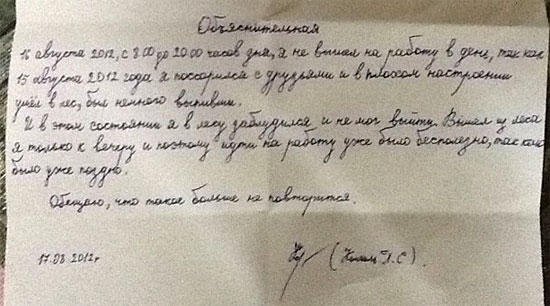 Объяснительная
16 августа 2012, с 8 00 до 20 00 часов дня, я не вышел на работу в день, так как
15 августа 2012 года я поссорился с друзьями и в плохом настроении
ушёл в лес, был немного выпивши.
И в этом состоянии я в лесу заблудился и не мог выйти. Вышел из леса
я только к вечеру и поэтому идти на работу уже было бесполезно, так как
было уже поздно.
Обещаю, что такое больше не повторится.
17.08 2012г